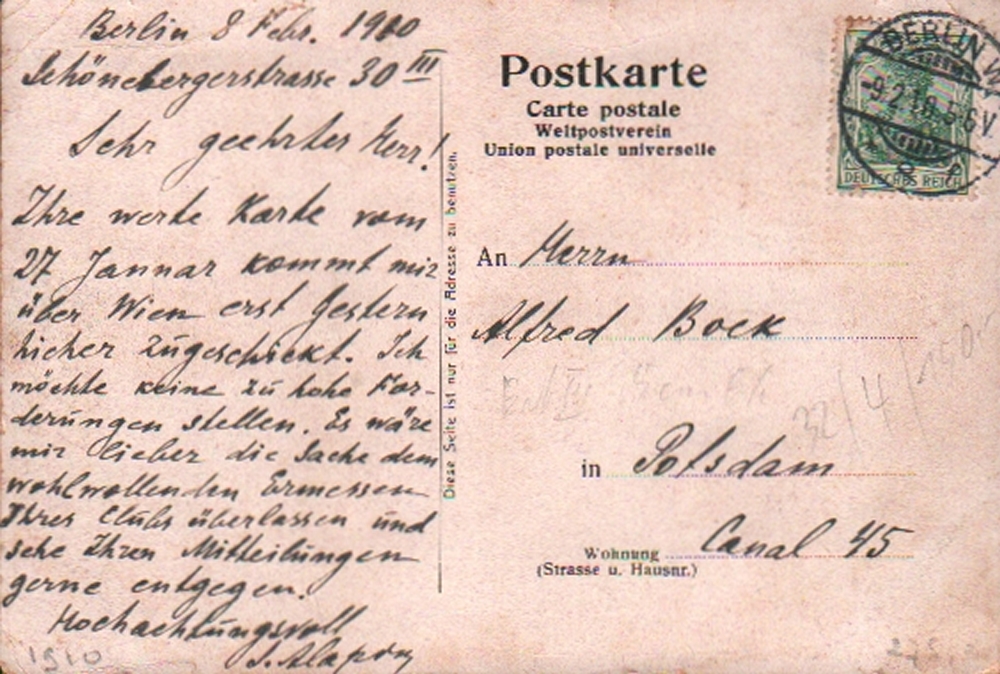 Berlin 8 Febr. 1910
Schönebergerstrasse 30 III
Sehr geehrter Herr!
Ihre werte Karte vom
27 Januar kommt mir
über Wien erst gestern
hieher zugeschickt. Ich
möchte keine zu hohe For-
derungen stellen. Es wäre
mir lieber die Sache dem
wohlwollenden Ermessen
Ihres Clubs überlassen und
sehe Ihren Mitteilungen
gerne entgegen.
Hochachtungsvoll
S. Alapin
1910
Diese Seite ist nur für die Adresse zu benutzen.
Postkarte
Carte postale
Weltpostverein
Union postale universelle
BERLIN W.
-9.2.10.5-6V.
DEUTSCHES REICH
An Herrn
Alfred Bock
32/4/
in Potsdam
Wohnung Canal 45
(Strasse u. Hausnr.)